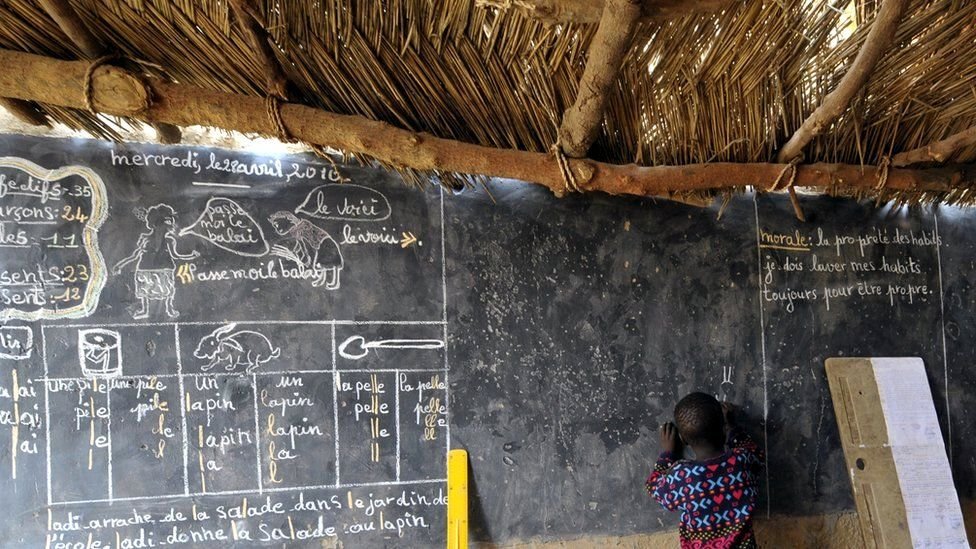 Mercredi, le 28 avril, 2010
Effectifs: 35
Garçons: 24
11
Présents: 23
12
Passe
moi le
balai
le voici
le voici ».
« Passe moi le balai
une pile
pile
le
une pile
pile
le
l
un
lapin
lapin
la
un
lapin
lapin
la
l
la pelle
pelle
lle
le
la pelle
pelle
lle
l
ladi arrache de la salade dans le jardin de
l'école. ladi donne la salade au lapin
morale: la propreté des habits.
je dois laver mes habits
toujours pour être propre.